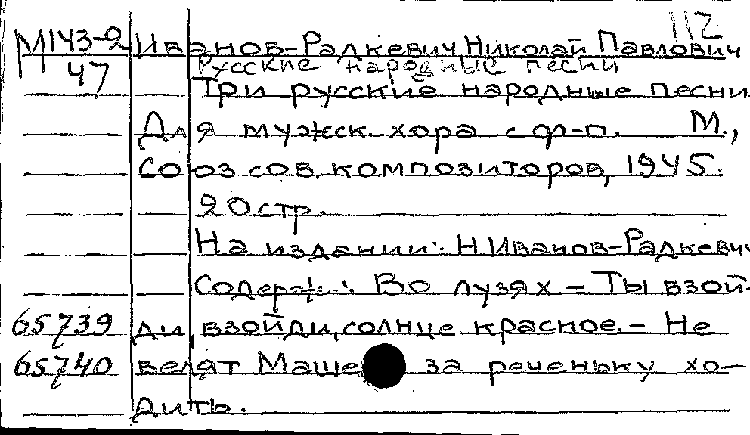 112
М143-2 Иванов-Радкевич Николай Павлович
47 Русские народные песни
Три русские народные песни
Для мужск. хора с ф-п. М.,
Союз сов. композиторов, 1945.
20 стр.
На издании: Н. Иванов-Радкевич
Содерж.: Во лузях – Ты взой-
65739 ди, взойди, солнце красное. – Не
65740 велят Маше за реченьку хо-
дить.